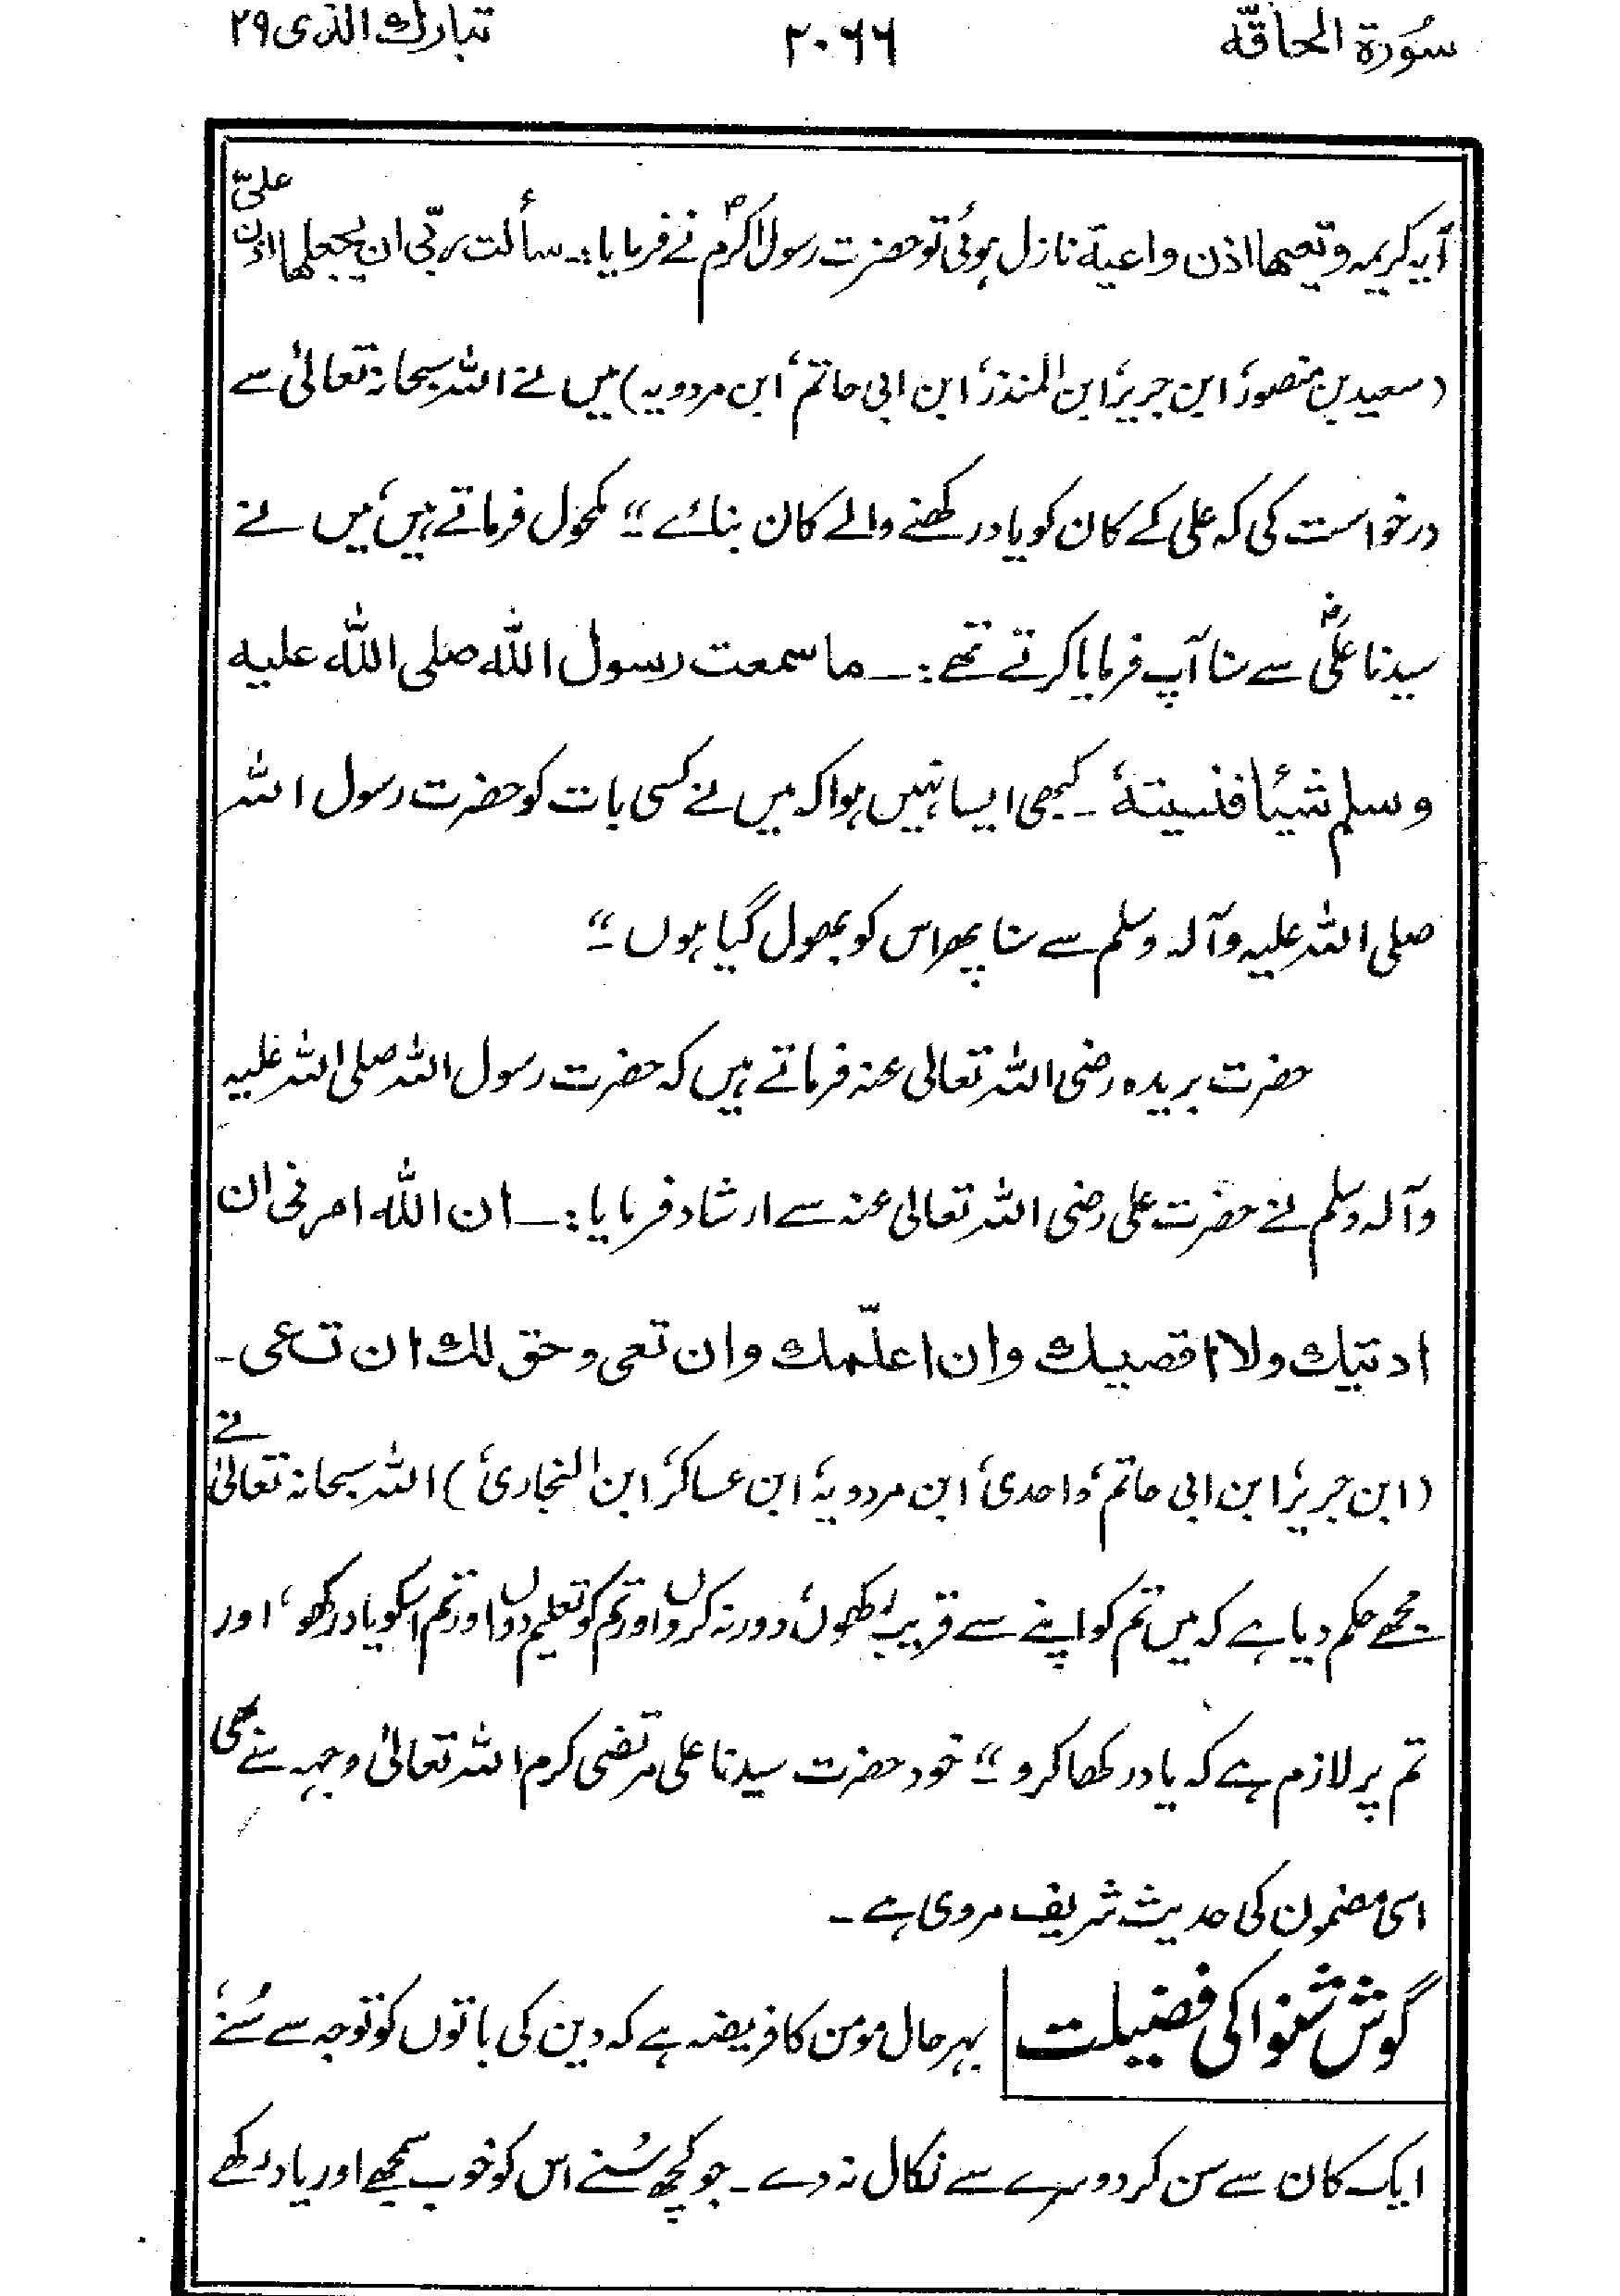 سُورة الحاقّه
۲۰۶۶
تبارك الذى ۲۹
آیہ کریمہ وتعیھا اذن واعیة نازل ہوئی تو حضرت رسول اکرمؐ نے فرمایا:۔ سألت ربّی ان یجعلھا اذن علیّ
(سعید بن منصور، ابن جریر، ابن المنذر، ابن ابی حاتم، ابن مردویہ) میں نے اللہ سبحانہ تعالیٰ سے
درخواست کی کہ علی کے کان کو یاد رکھنے والے کان بنائے۔" مکحول فرماتے ہیں، میں نے
سیدنا علیؓ سے سنا آپ فرمایا کرتے تھے:۔ ما سمعت رسول اللہ صلی اللہ علیہ
وسلم شیئا فنسیتہٗ۔ کبھی ایسا نہیں ہوا کہ میں نے کسی بات کو حضرت رسول اللہ
صلی اللہ علیہ وآلہ وسلم سے سنا پھر اس کو بھول گیا ہوں۔"
حضرت بریدہ رضی اللہ تعالی عنہ فرماتے ہیں کہ حضرت رسول اللہ صلی اللہ علیہ
وآلہ وسلم نے حضرت علی رضی اللہ تعالی عنہ سے ارشاد فرمایا:۔ ان اللہ امرنی ان
ادنیك ولا اقصیك وان اعلّمك وان تعی وحق لك ان تعی۔
(ابن جریر، ابن ابی حاتم، واحدی، ابن مردویہ، ابن عساکر، ابن النجاری) اللہ سبحانہ تعالیٰ نے
مجھے حکم دیا ہے کہ میں تم کو اپنے سے قریب رکھوں، دور نہ کروں اور تم کو تعلیم دوں اور تم اسکو یاد رکھو، اور
تم پر لازم ہے کہ یاد رکھا کرو۔" خود حضرت سیدنا علی مرتضی کرم اللہ تعالیٰ وجہہ سے بھی
اسی مضمون کی حدیث شریف مروی ہے۔
گوش شنوا کی فضیلت | بہر حال مومن کا فریضہ ہے کہ دین کی باتوں کو توجہ سے سُنے،
ایک کان سے سن کر دوسرے سے نکال نہ دے۔ جو کچھ سُنے اس کو خوب سمجھے اور یاد رکھے